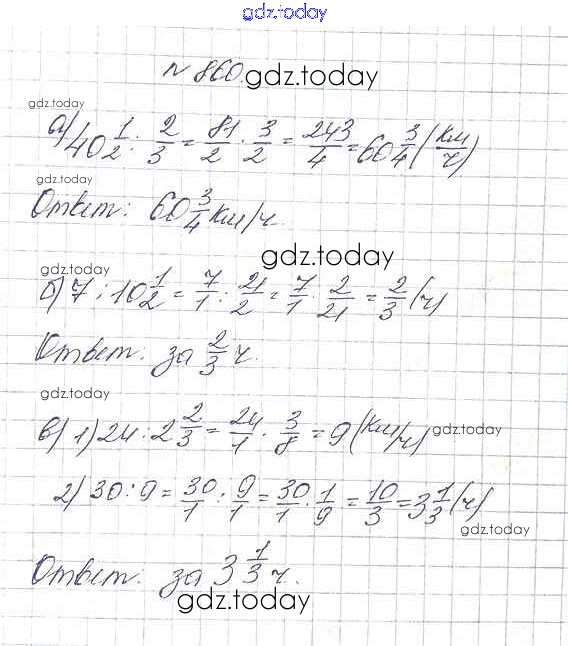 gdz.today
№ 860. gdz.today
gdz.today
а) 40 1/2 : 2/3 = 81/2 · 3/2 = 243/4 = 60 3/4 (км/ч)
gdz.today
Ответ: 60 3/4 км/ч.
gdz.today
gdz.today
б) 7 : 10 1/2 = 7/1 : 21/2 = 7/1 · 2/21 = 2/3 (ч)
Ответ. за 2/3 ч.
gdz.today
в) 1) 24 : 2 2/3 = 24/1 · 3/8 = 9 (км/ч) gdz.today
2) 30 : 9 = 30/1 : 9/1 = 30/1 · 1/9 = 10/3 = 3 1/3 (ч)
gdz.today
Ответ: за 3 1/3 ч.
gdz.today